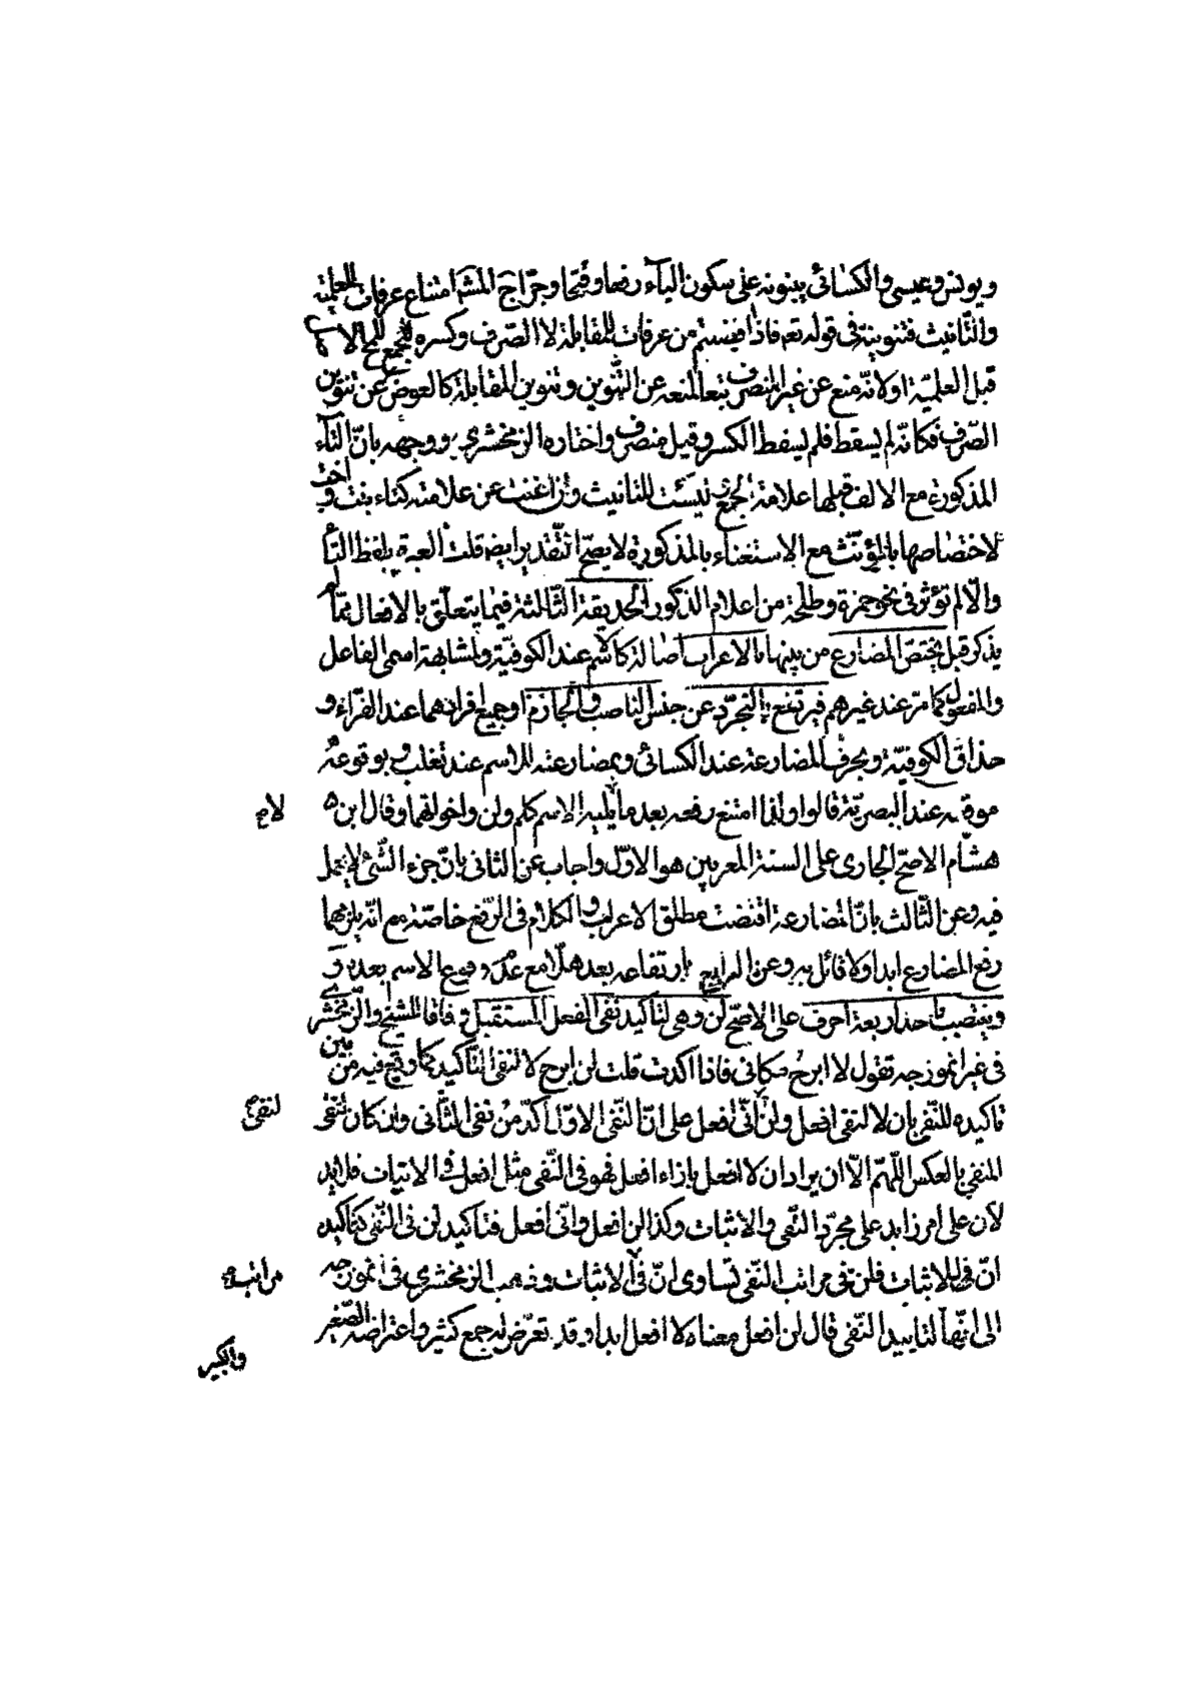 ويونس وعيسى والكسائى يبنونه على سكون الياء رفعا وفتحا وجرا ج المشه امتناع عرفات للعلمية
والتانيث فتنوينه فى قوله تعه فاذا افيضتم من عرفات للمقابلة لا الصرف وكسره للجمع
قبل العلميّة او لانّه منع عن غير المنصرف تبعا لمنعه عن التنوين وتنوين المقابلة كالعوض عن تنوين
الصّرف فكانّه لم يسقط فلم يسقط الكسر وقيل منصرف واختاره الزمخشرى ووجهه بانّ التآء
المذكورة مع الالف قبلها علامة الجمع ليست للتانيث وان اغنت عن علامته كتاء بنت واخت
لاختصاصها بالمؤنّث مع الاستغناء بالمذكورة لا يصحّ التّقدير ايضه قلت العبرة بلفظ التّا
والّا لم تؤثر فى نحو حمزة وطلحة من اعلام الذكور الحديقة الثّالثة فيما يتعلّق بالافعال
يذكر قبل يختصّ المضارع من بينها بالاعراب اصالة كالاسم عند الكوفيّة ولمشابهة اسمى الفاعل
والمفعول كما مرّ عند غيرهم فيرتفع بالتجرّد عن جنس الناصب والجازم او جميع افرادهما عند الفرّاء و
حذاق الكوفيّة وبحرف المضارعة عند الكسائى وبمضارعته للاسم عند ثعلب وبوقوعه
موقعه عند البصريّة قالوا ولذا امتنع رفعه بعد ما يليه الاسم كلم ولن واخواتهما وقال ابن
لام
هشام الاصحّ الجارى على السنة المعربين هو الاوّل واجاب عن الثانى بانّ جزء الشّئ لا يعمل
فيه وعن الثّالث بانّ المضارعة اقتضت مطلق الاعراب والكلام فى الرّفع خاصّة مع انّه يلزمهما
رفع المضارع ابدا ولا قائل به وعن الرابع بارتفاعه بعد هلّا مع عدم وقوع الاسم بعده
وينتصب باحد اربعة احرف على الاصحّ لن وهى لتاكيد نفى الفعل المستقبل وفاقا للشيخ والزمخشرى
فى غير انموذجه تقول لا ابرح مكانى فاذا اكدت قلت لن ابرح لا لنفى التّاكيد كما
تاكيده للنّفى بان لا لنفى افعل ولن لنفى انّى افعل على انّ النّفى الاوّل اكّد من نفى الثّانى وان كان
لنفى
المنفى بالعكس اللّهمّ الّا ان يراد ان لا افعل بازاء افعل فهو فى النّفى مثل افعل فى الاثبات
لان على امر زايد على مجرّد النّفى والاثبات وكذا لن افعل وانّى افعل فتاكيد لن فى النّفى كتاكيد
انّ فى الاثبات فلن فى مراتب النّفى تساوى انّ فى الاثبات وذهب الزمخشرى فى انموذجه
مراتب
الى انّها لتابيد النّفى قال لن افعل معناه لا افعل ابدا وقد تعرّض له جمع كثير واعتراضه الصّغير
والكبير